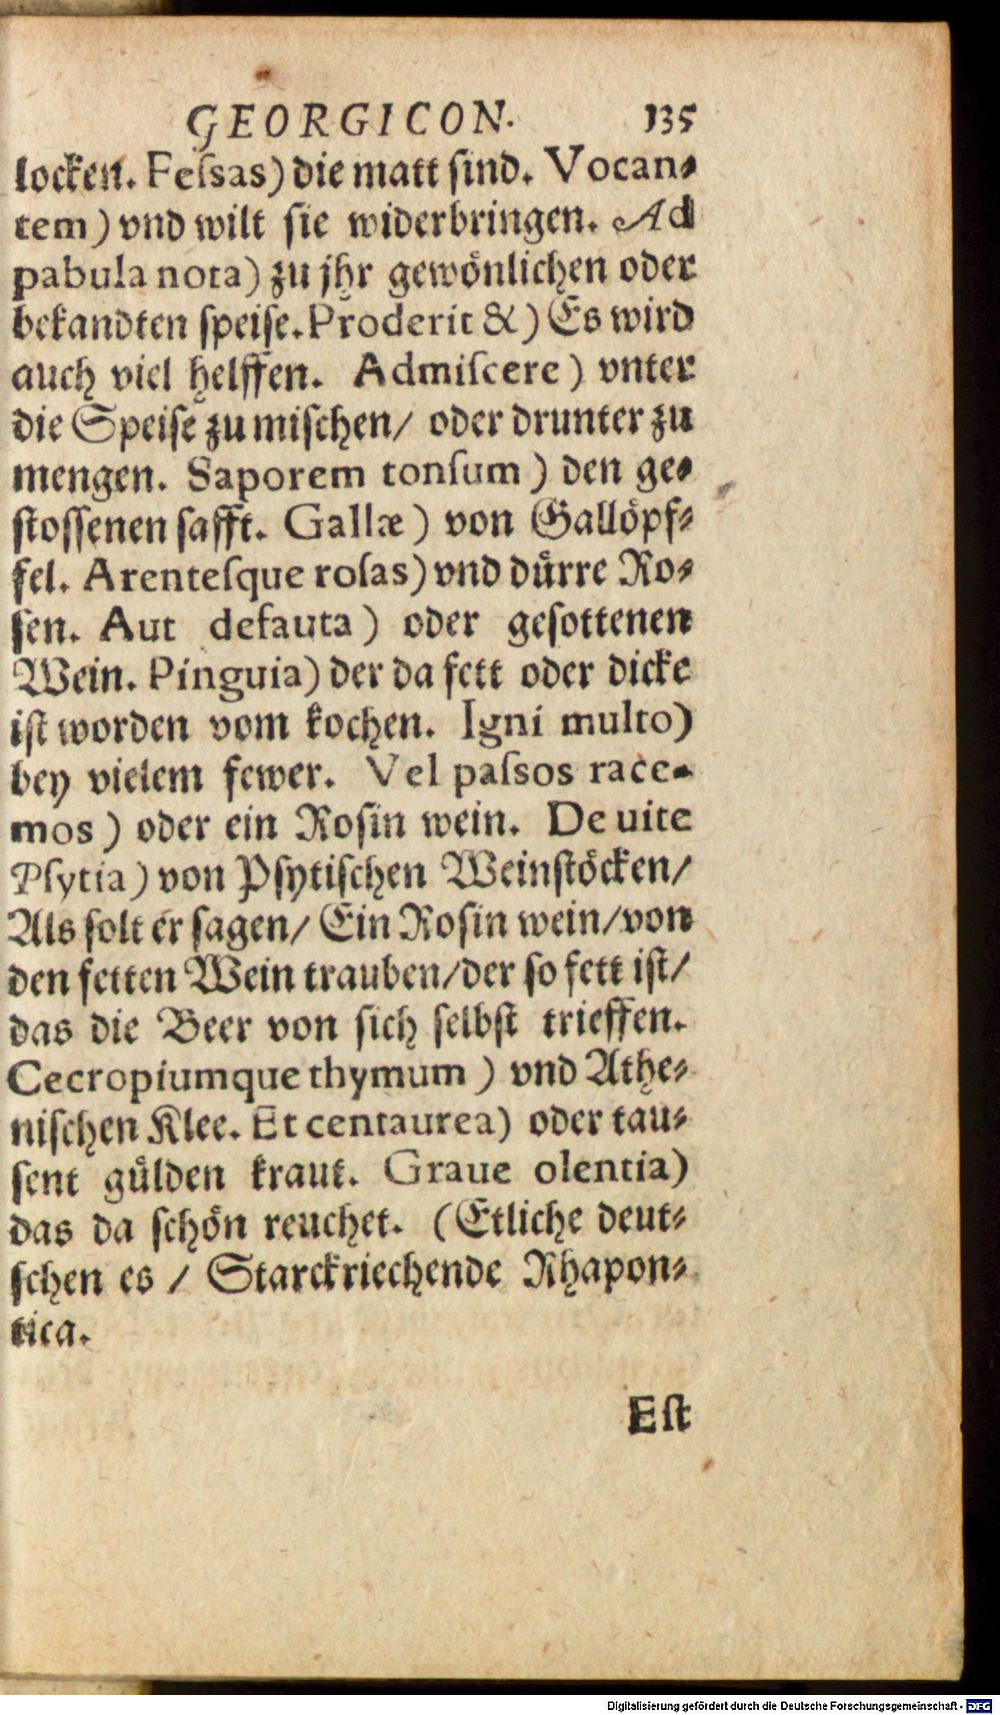 GEORGICON. 135
locken. Feſsas) die matt ſind. Vocan-
tem) vnd wilt ſie widerbringen. Ad
pabula nota) zu jhr gewönlichen oder
bekandten ſpeiſe. Proderit &) Es wird
auch viel helffen. Admiſcere) vnter
die Speiſe zu miſchen/ oder drunter zu
mengen. Saporem tonſum) den ge-
ſtoſſenen ſafft. Gallæ) von Gallöpf-
fel. Arentesque roſas) vnd dürre Ro-
ſen. Aut defauta) oder geſottenen
Wein. Pinguia) der da fett oder dicke
iſt worden vom kochen. Igni multo)
bey vielem fewer. Vel paſsos race-
mos) oder ein Roſin wein. De uite
Pſytia) von Pſytiſchen Weinſtöcken/
Als ſolt er ſagen/ Ein Roſin wein/ von
den fetten Wein trauben/ der ſo fett iſt/
das die Beer von ſich ſelbſt trieffen.
Cecropiumque thymum) vnd Athe-
niſchen Klee. Et centaurea) oder tau-
ſent gülden kraut. Graue olentia)
das da ſchön reuchet. (Etliche deut-
ſchen es / Starckriechende Rhapon-
tica.
Eſt
Digitalisierung gefördert durch die Deutsche Forschungsgemeinschaft - DFG